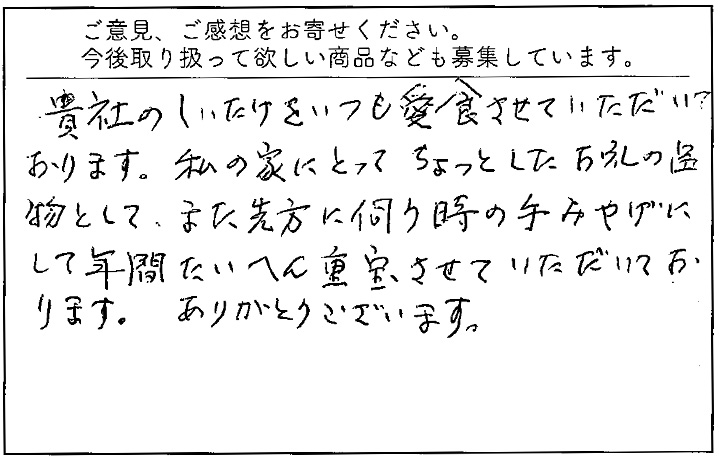 ご意見、ご感想をお寄せください。
今後取り扱って欲しい商品なども募集しています。
貴社のしいたけをいつも愛食させていただいて
おります。私の家にとってちょっとしたお礼の品
物として、また先方に伺う時の手みやげに
して年間たいへん重宝させていただいてお
ります。 ありがとうございます。